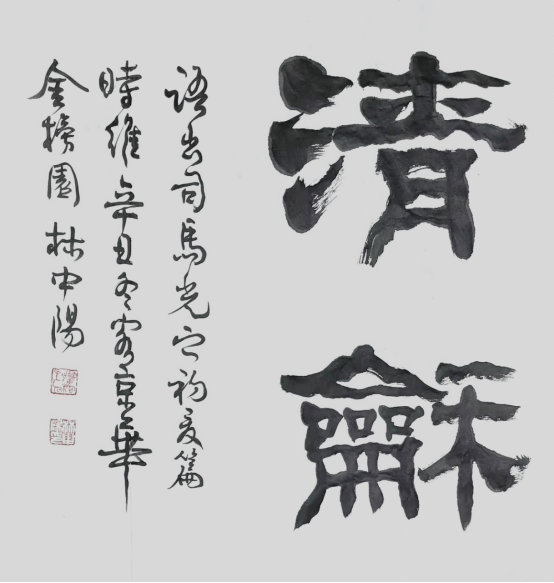 清
龢
語出司馬光之初夏篇
時維辛丑冬客京華
金榜園 林中陽